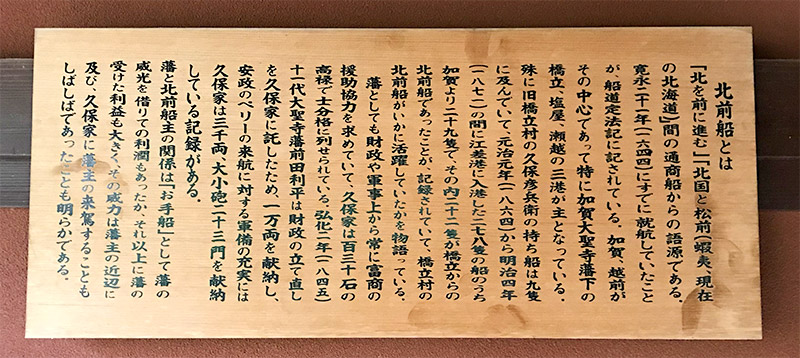 北前船とは
「北を前に進む」「北国と松前(蝦夷、現在
の北海道)間の通商船からの語源である。
寛永二十一年(一六四四)にすでに就航していたこと
が、船道定法記に記されている。加賀、越前が
その中心であって特に加賀大聖寺藩下の
橋立、塩屋、瀬越の三港が主となっている。
殊に旧橋立村の久保彦兵衛の持ち船は九隻
に及んでいて、元治元年(一八六四)から明治四年
(一八七一)の間に江差港に入港した二七八隻の船のうち
加賀より二十九隻で、その内二十二隻が橋立からの
北前船であったことが、記録されていて、橋立村の
北前船がいかに活躍していたかを物語っている。
藩としても財政や軍事上から常に富商の
援助協力を求めていて、久保家は百三十石の
高禄で士分格に列せられている。弘化二年(一八四五)
十一代大聖寺藩前田利平は財政の立て直し
を久保家に託したため、一万両を献納し、
安政のペリーの来航に対する軍備の充実には
久保家は三千両、大小砲一十三門を献納
している記録がある。
藩と北前船主の関係は「お手船」として藩の
威光を借りての利潤もあったが、それ以上に藩の
受けた利益も大きく、その威力は藩主の近辺に
及び、久保家に藩主の来駕することも
しばしばであったことも明らかである。